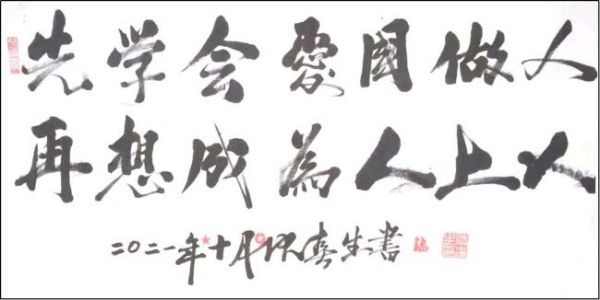 先学会爱國做人
再想成為人上人
二〇二一年十月 春生書